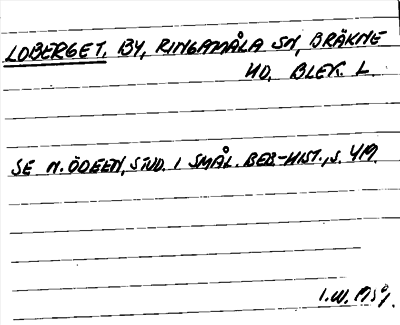 LOBERGET, BY, RINGAMÅLA SN, BRÄKNE
HD, BLEK. L.
SE N. ÖDEEN, STUD. I SMÅL. BEB-HIST., S. 419.